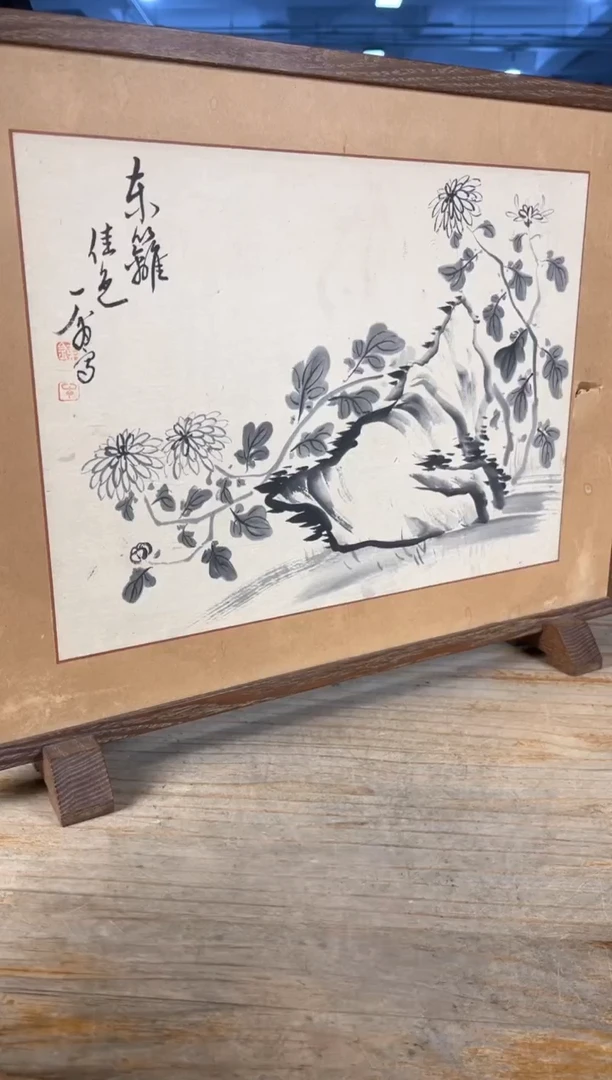 东籬
佳色
一翁写